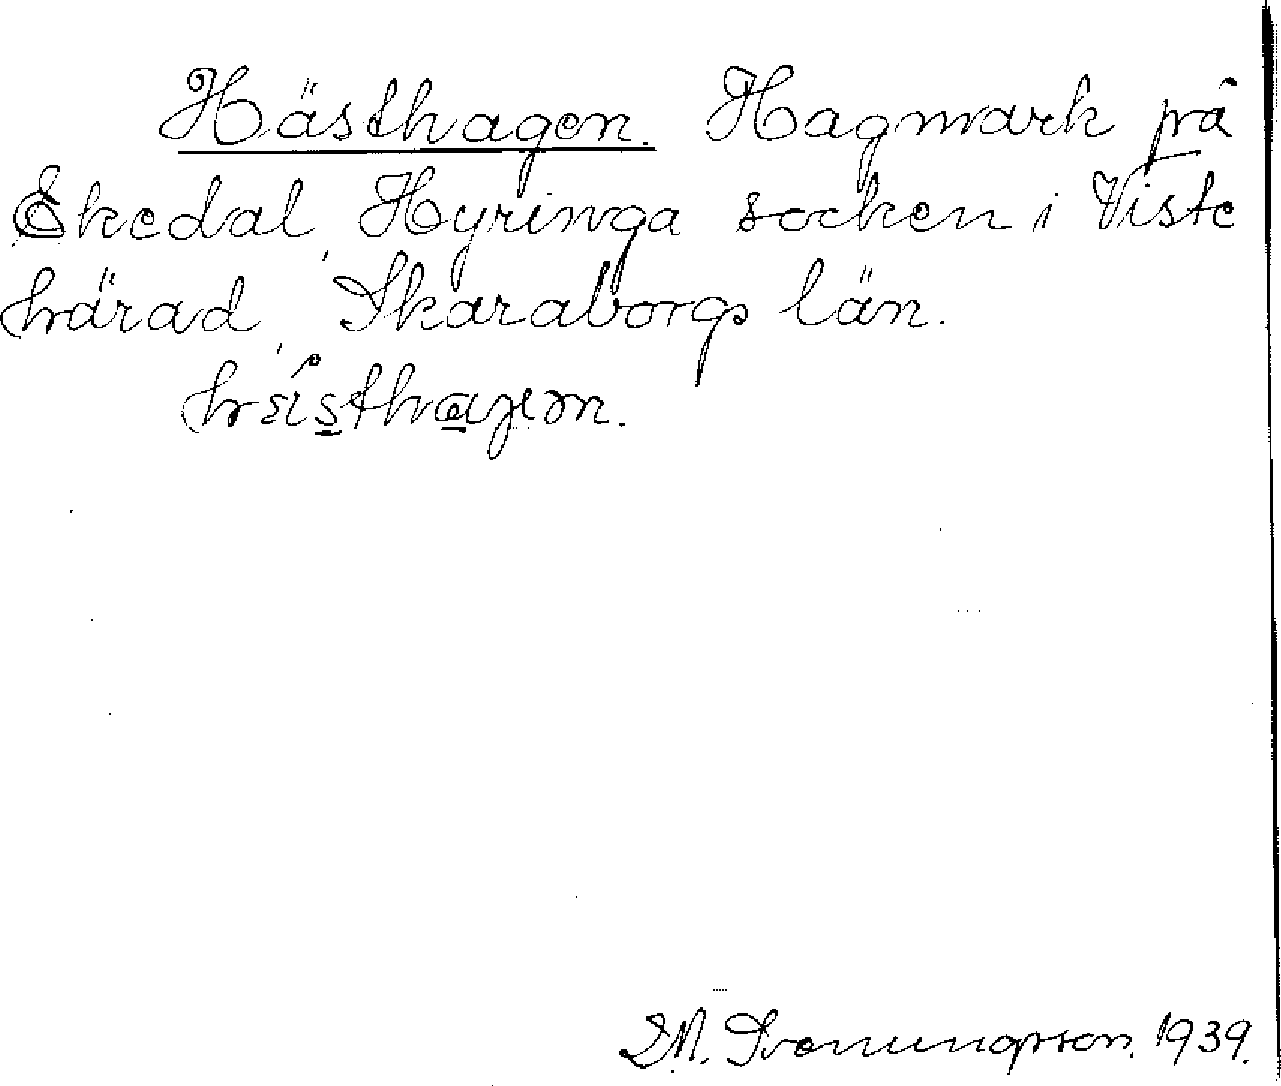 Hästhagen. Hagmark på
Ekedal, Hyringa socken i Viste
härad, Skaraborgs län.
hästhagen.
Svenungsson. 1939.